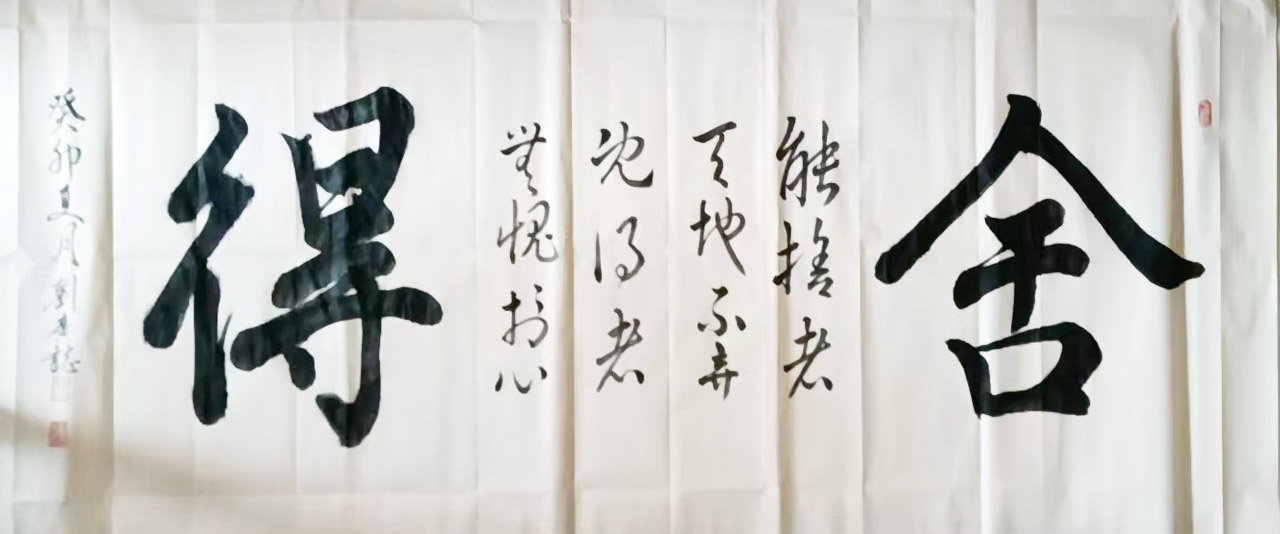 舍
能捨者
天地不弃
得者
無愧於心
得
癸卯夏月劉誌